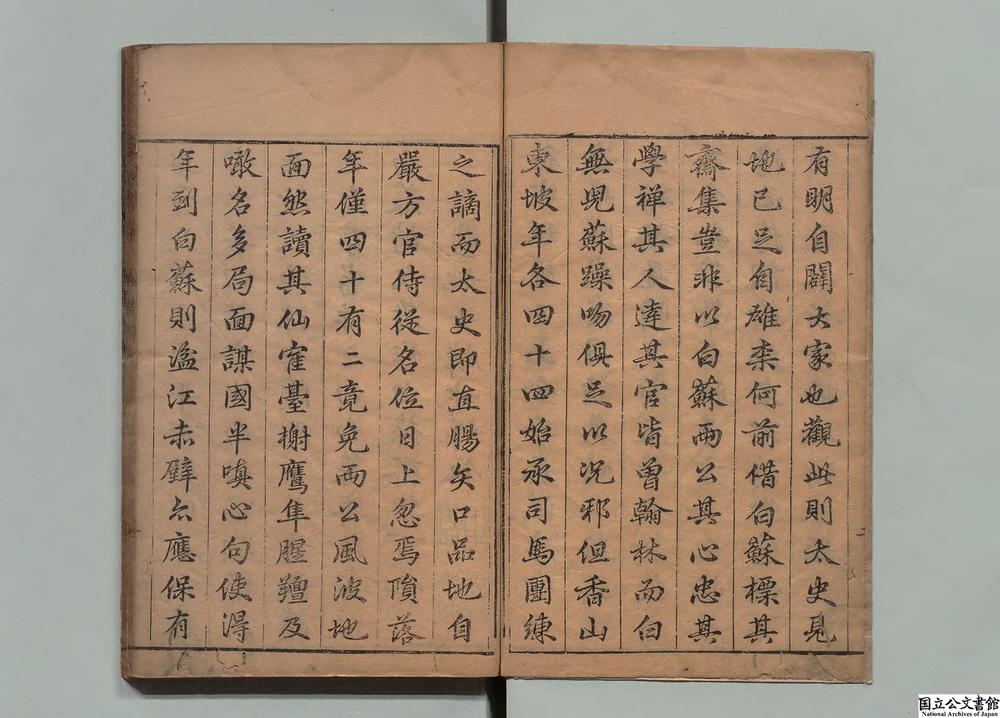 有明自闢大家也觀此則太史見
地已足自雄柰何前借白蘇標其
齋集豈非以白蘇兩公其心忠其
學禪其人達其官皆曾翰林而白
無兒蘇躁吻俱足以况邪但香山
東坡年各四十四始承司馬團練
之謫而太史即直腸矢口品地自
嚴方官侍從名位日上忽焉隕落
年僅四十有二竟免兩公風波地
面然讀其仙寉臺榭鷹隼腥羶及
噉名多局面謀國半嗔心句使得
年到白蘇則湓江赤壁亦應保有
国立公文書館
National Archives of Japan